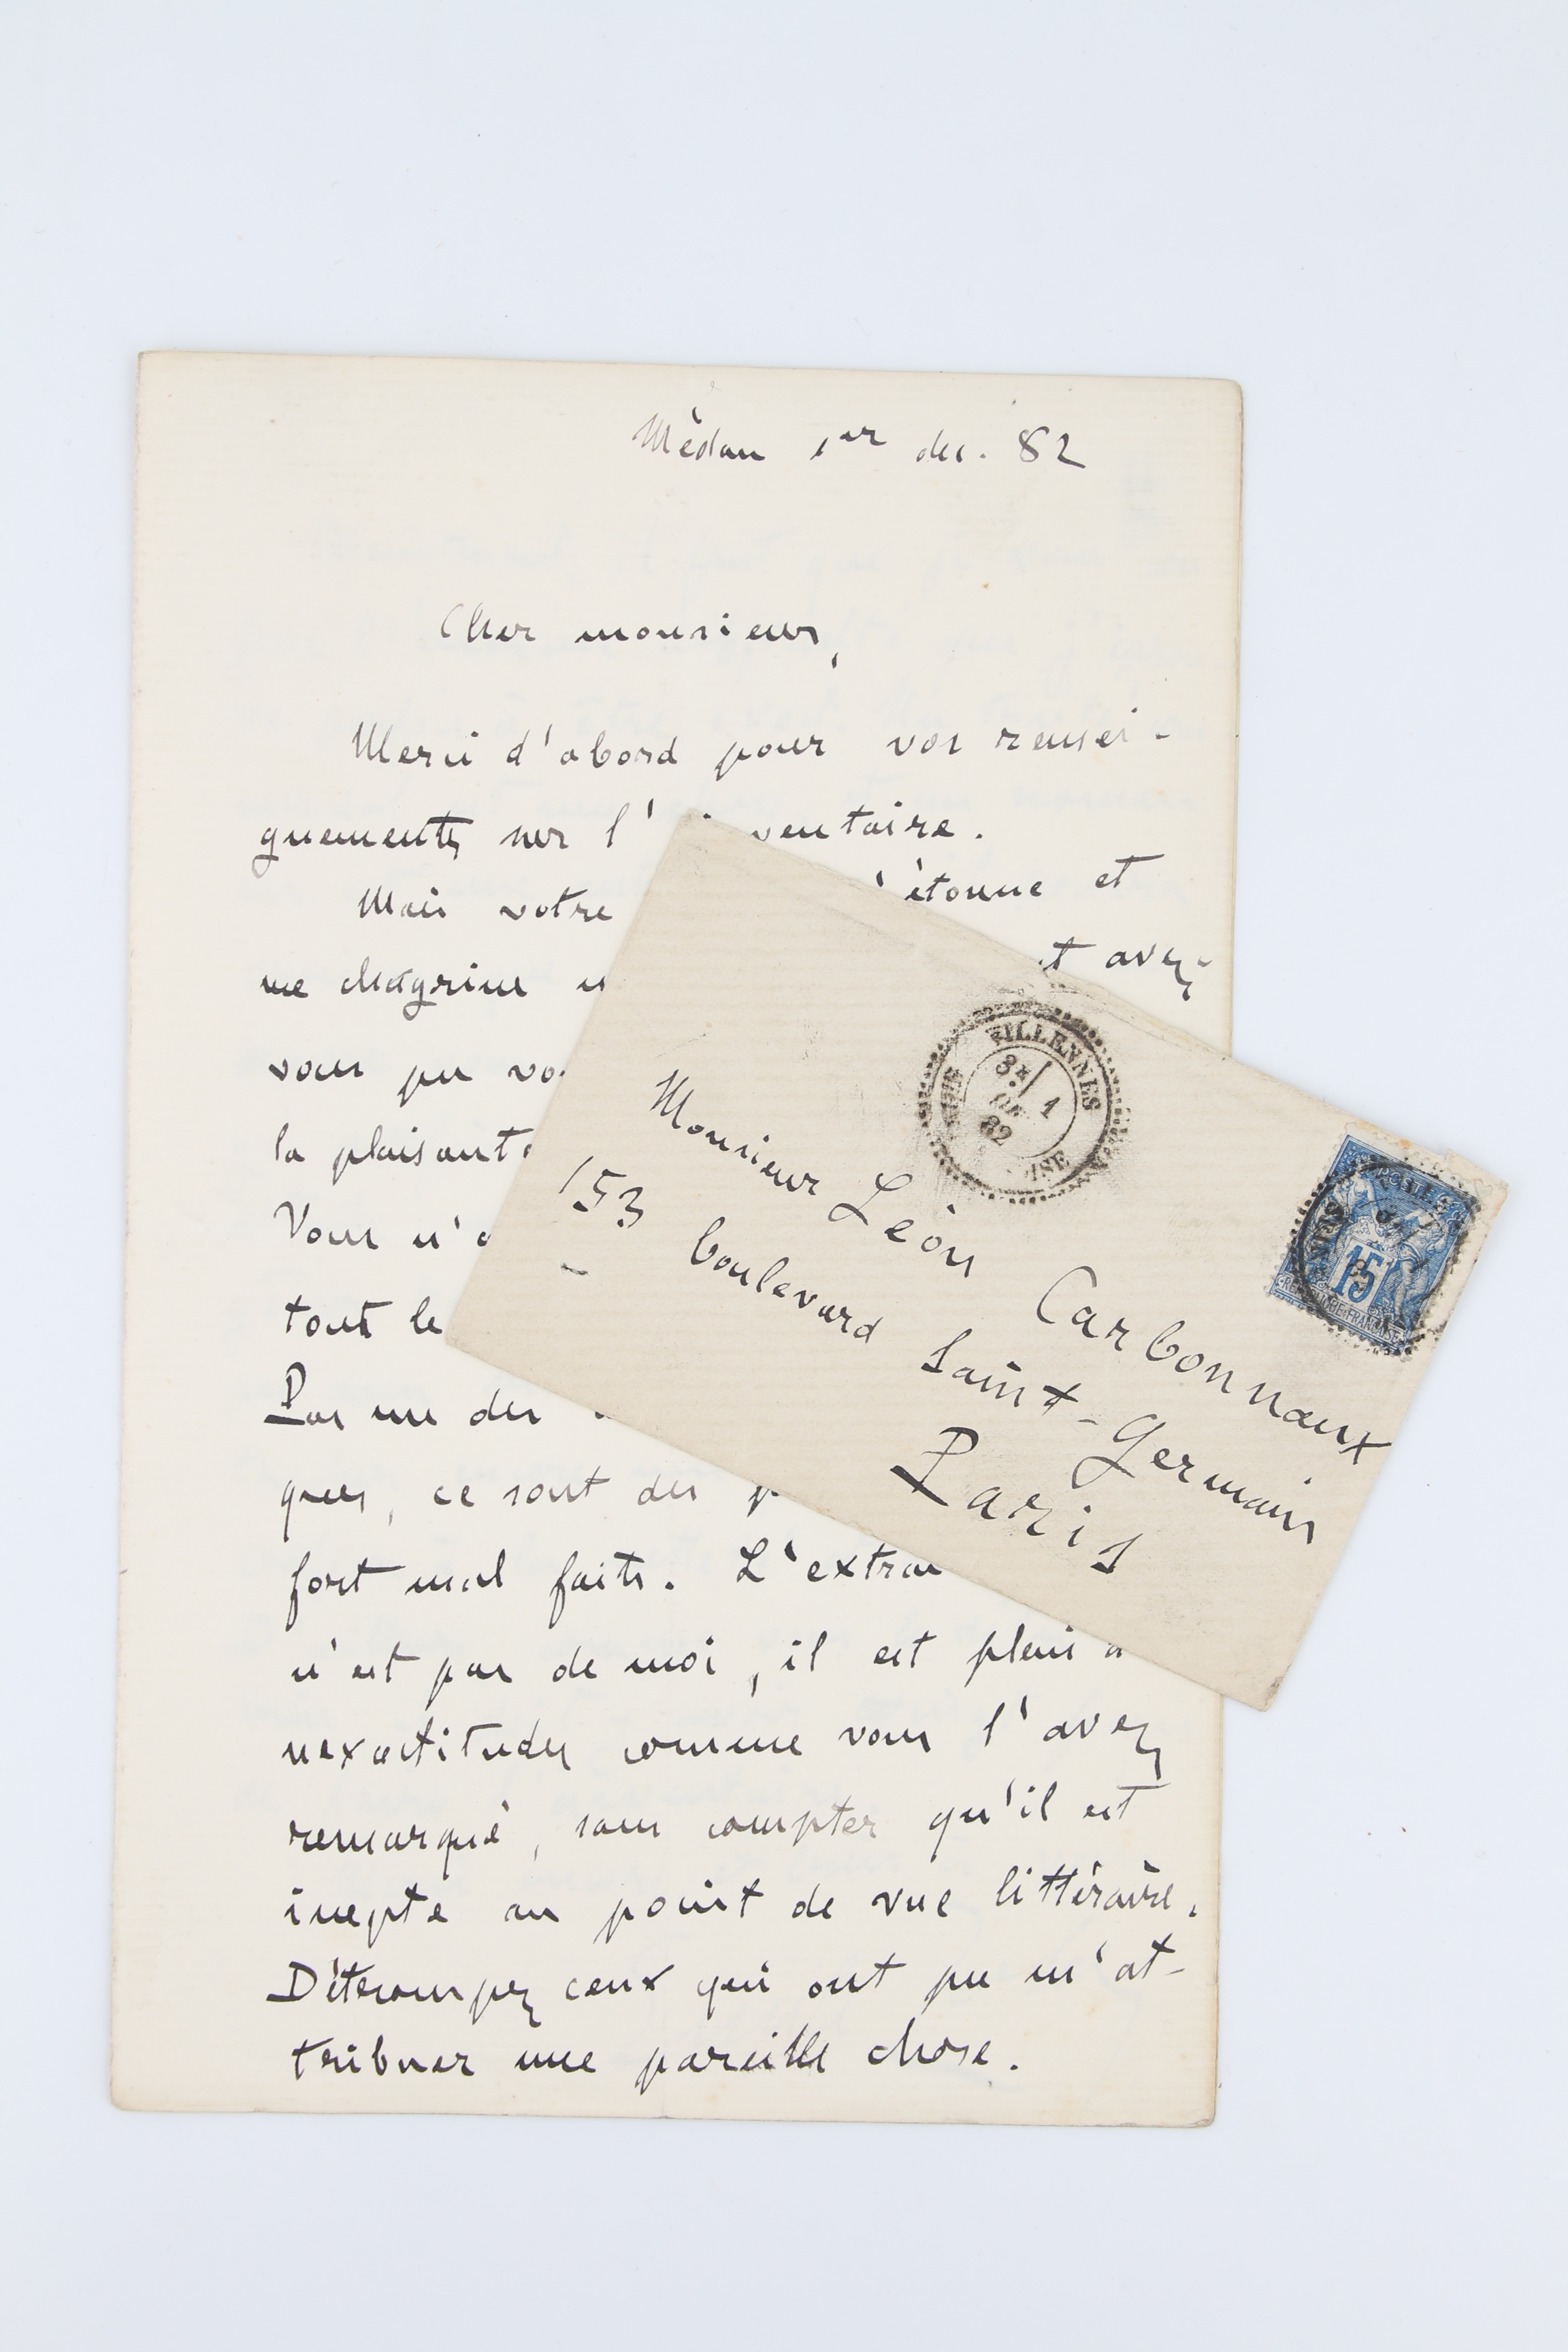 Médan 1er dec. 82
Cher monsieur,
Merci d'abord pour vos rensei-
gnements sur l' ventaire.
Mais votre 'étonne et
me chagrine t avez-
vous pu vo
la plaisant
Vous n'a
tout le
Pas un des
ques, ce sont des p
fort mal faits. L'extrai
n'est pas de moi, il est plein d
nexactitudes comme vous l'avez
remarqué, sans compter qu'il est
inepte au point de vue littéraire.
Détrompez ceux qui ont pu m'at-
tribuer une pareille chose.
VILLENNES
3E
1
DE
82
OISE
Monsieur Léon Carbonnaux
153 boulevard Saint-Germain
Paris
POSTE
15
REPUBLIQUE FRANÇAISE